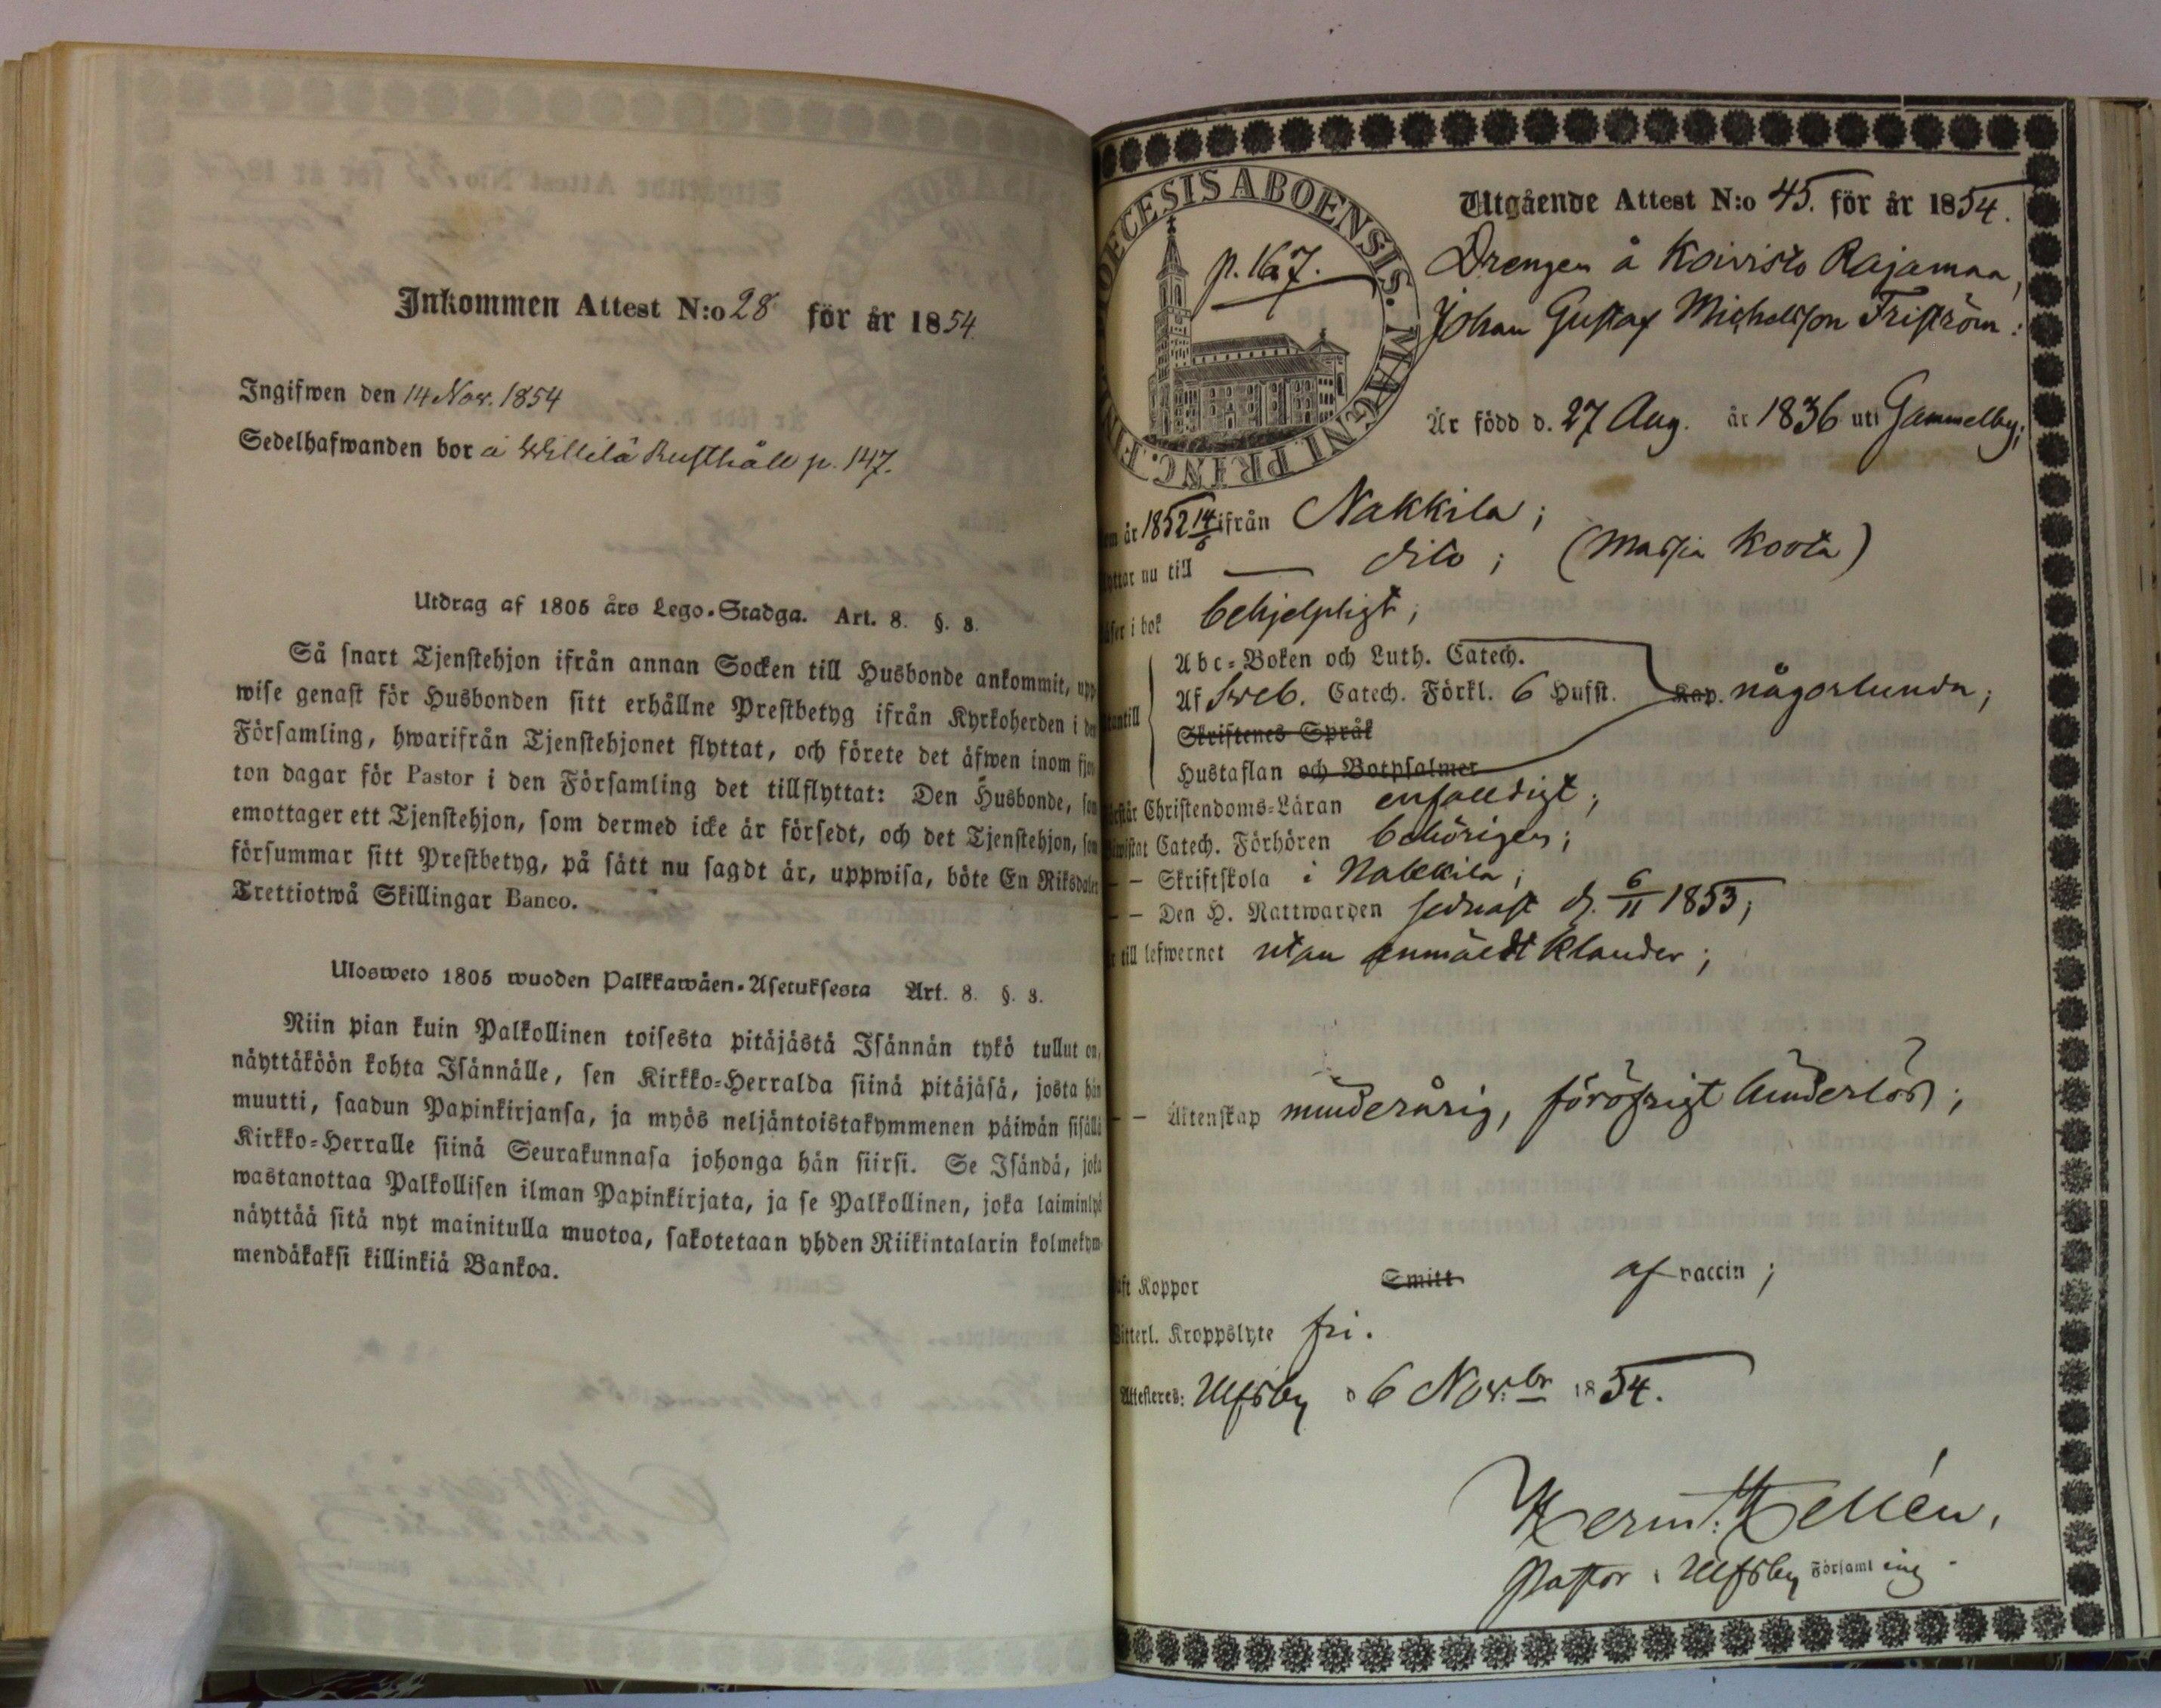 Inkommen Attest N:o 28 för år 1854.
Ingifwen den 14 Nov. 1854
Sedelhafwanden bor å Willilä Rusthåll p. 147.
Utdrag af 1805 års Lego-Stadga. Art. 8. §. 8.
Så snart Tjenstehjon ifrån annan Socken till Husbonde ankommit, upp
wise genast för Husbonden sitt erhållne Prestbetyg ifrån Kyrkoherden i den
Församling, hwarifrån Tjenstehjonet flyttat, och förete det äfwen inom fjor
ton dagar för Pastor i den Församling det tillflyttat: Den Husbonde, som
emottager ett Tjenstehjon, som dermed icke är försedt, och det Tjenstehjon, som
försummar sitt Prestbetyg, på sätt nu sagdt är, uppwisa, böte En Riksdaler
Trettiotwå Skillingar Banco.
Ulosweto 1805 wuoden Palkkawäen-Asetuksesta Art. 8. §. 8.
Niin pian kuin Palkollinen toisesta pitäjästä Isännän tykö tullut on,
näyttäköön kohta Isännälle, sen Kirkko-Herralda siinä pitäjäsä, josta hän
muutti, saadun Papinkirjansa, ja myös neljäntoistakymmenen päiwän sisällä
Kirkko-Herralle siinä Seurakunnasa johonga hän siirsi. Se Isändä, joka
wastanottaa Palkollisen ilman Papinkirjata, ja se Palkollinen, joka laiminlyö
näyttää sitä nyt mainitulla muotoa, sakotetaan yhden Riikintalarin kolmekym-
mendäkaksi killinkiä Bankoa.
OECESIS ABOENSIS. MAGNI PRINC. F
p. 167.
Utgående Attest N:o 45. för år 1854.
Drengen å Koivisto Rajamaa,
Johan Gustaf Michelsson Friström:
Är född d. 27 Aug. år 1836 uti Gammelby;
om år 1852 14/6 ifrån Nakkila;
yttar nu till — dito; (Masia Koota)
äser i bok behjelpligt;
utantill
Abc-Boken och Luth. Catech.
Af Sveb. Catech. Förkl. 6 Hufst. Kap. någorlunda;
Skriftenes Språk
Hustaflan och Botpsalmer
örstår Christendoms-Läran enfaldigt;
iwistat Catech. Förhören behörigen;
— — Skriftskola i Nakkila;
— — Den H. Nattwarden sednast d. 6/11 1853;
r till lefwernet utan anmäldt klander;
— — Äktenskap minderårig, föröfrigt hinderlös;
aft Koppor Smitt af vaccin;
Witterl. Kroppslyte fri.
Attesteres: Ulfsby d 6 Nov:br 1854.
Herm: Hellén,
Pastor i Ulfsby Församling.